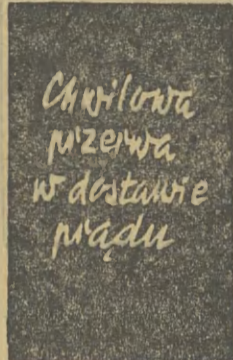 Chwilowa
przerwa
w dostawie
prądu